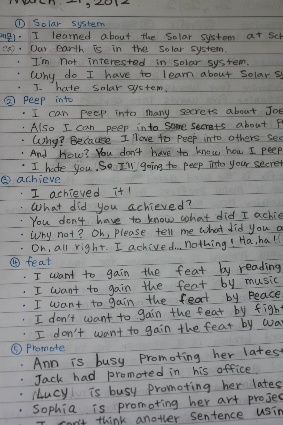 March 21, 2012
① Solar system
I learned about the Solar system at Sch
Our earth is in the Solar system.
I'm not interested in Solar system.
Why do I have to learn about Solar s
I hate Solar system.
② Peep into
I can peep into many secrets about Joe
Also I can peep into some secrets about P
Why? Because I love to peep into others sec
And How? You don't have to know how I peep
I hate you. So I'll going to peep into your secret
③ achieve
I achieved it!
What did you achieved?
You don't have to know what did I achie
Why not? Oh, please tell me what did you a
Oh, all right. I achived... Nothing! Ha, ha!
④ feat
I want to gain the feat by reading
I want to gain the feat by music
I want to gain the feat by Peace
I don't want to gain the feat by figh
I don't want to gain the feat by wa
⑤ Promote
Ann is busy promoting her latest
Jack had promoted in his office.
Lucy is busy promoting her lates
Sophia is promoting her art projec
I can't think another sentence usin